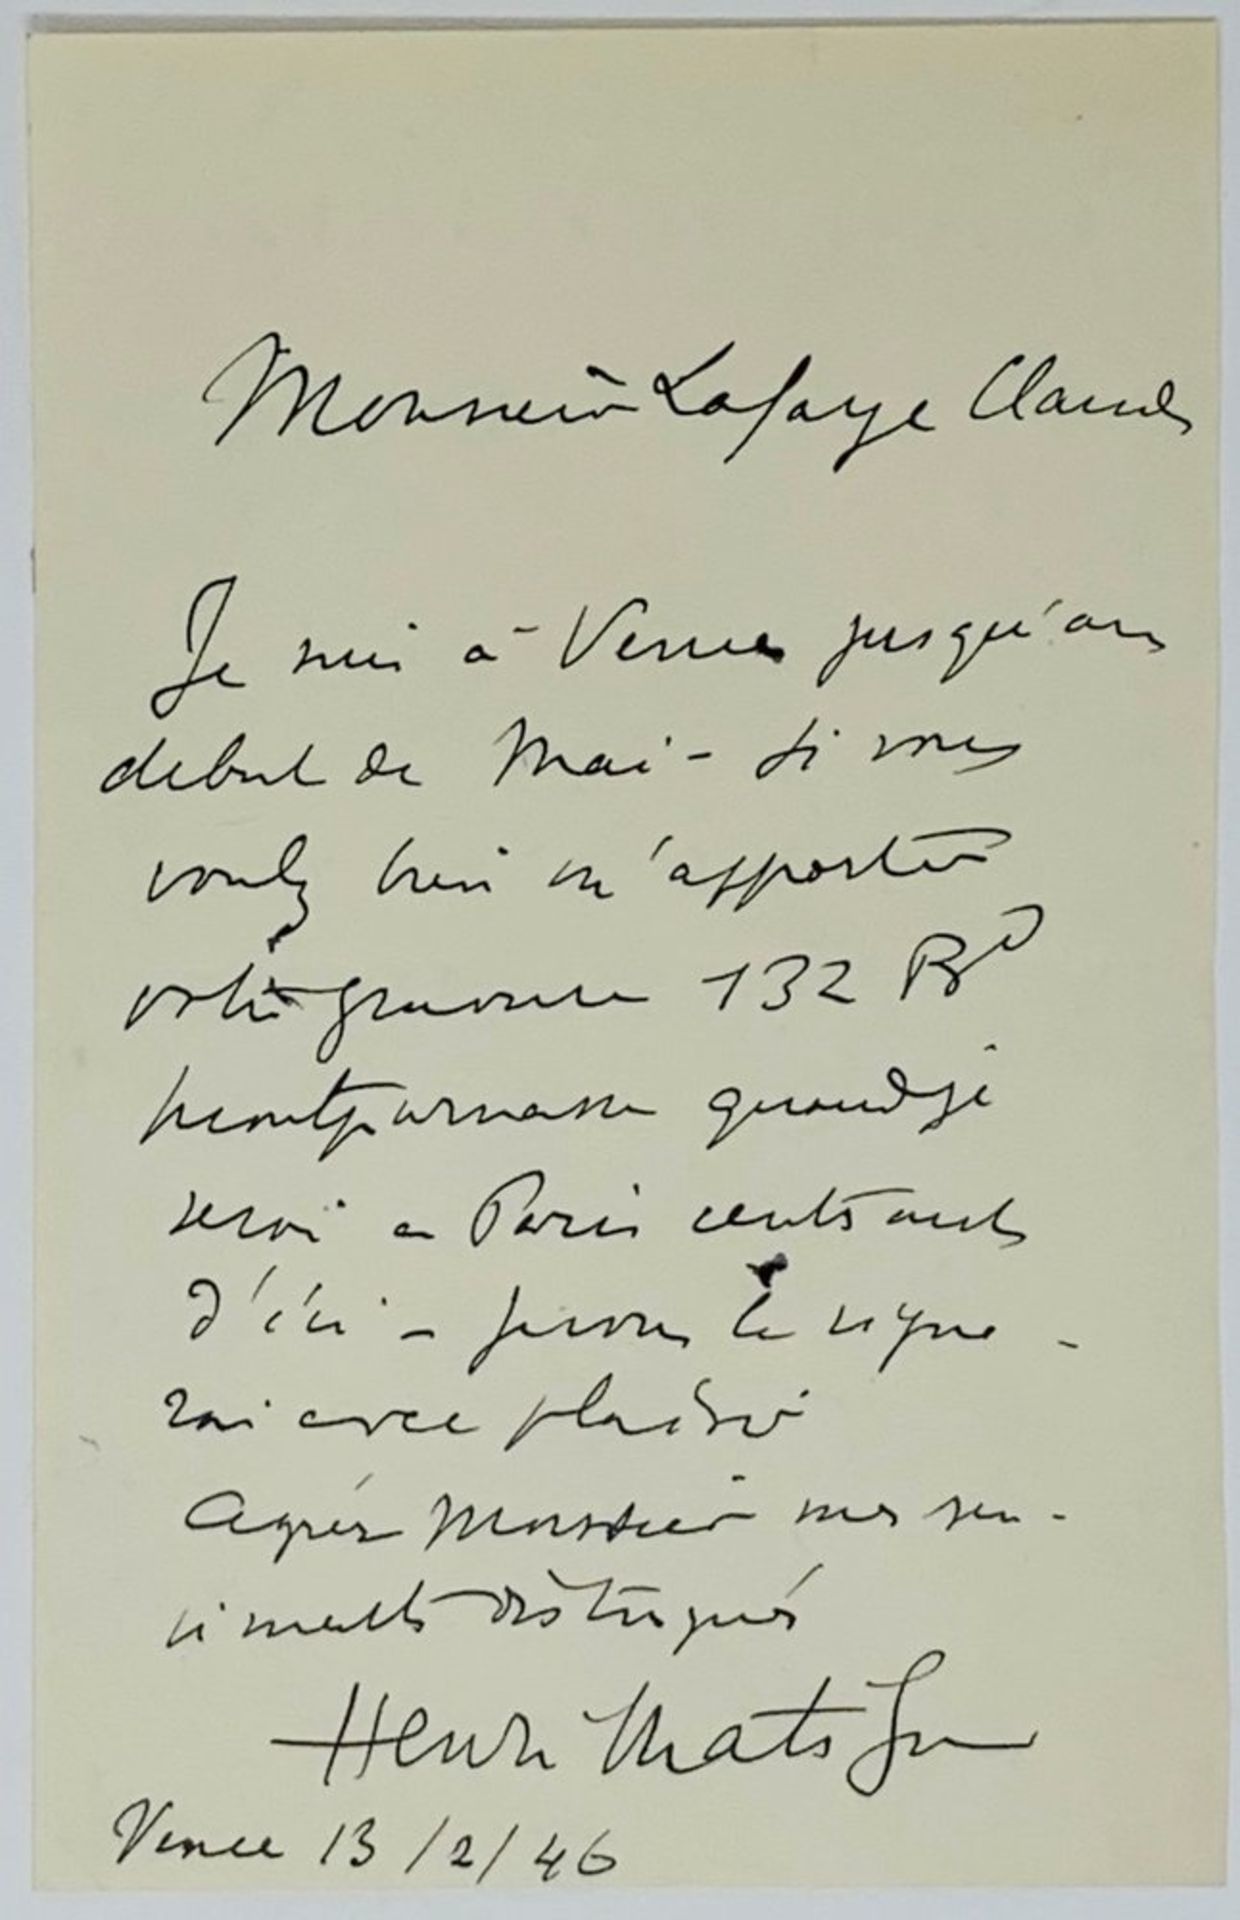 Monsieur Lafaye Claude
Je suis à Vence jusqu'au
debut de Mai - si vous
voulez bien m'apporter
votre gravure 132 Bd
Montparnasse quand je
serai a Paris
d'ici - je vous la signe -
rai avec plaisir
Agréez Monsieur mes sen -
timents distingués
Henri Matisse
Vence 13/2/46